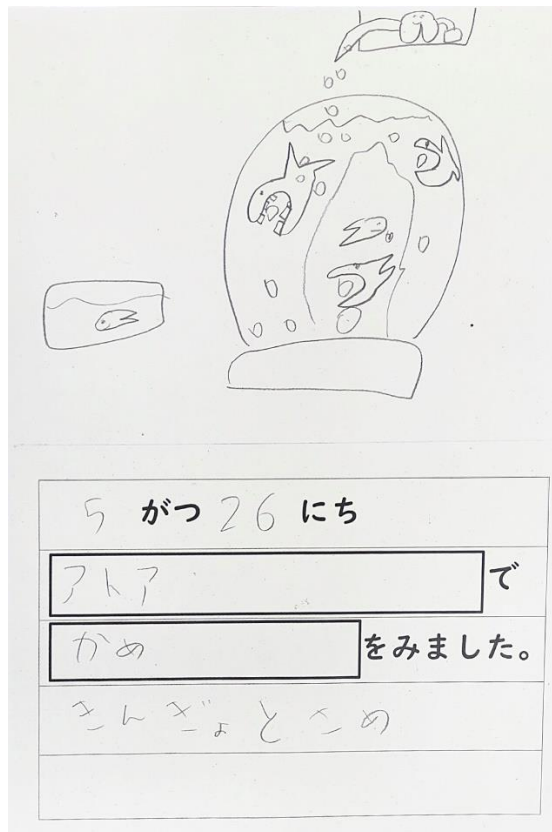 5 がつ 26 にち
アトア で
かめ をみました。
きんぎょとさめ